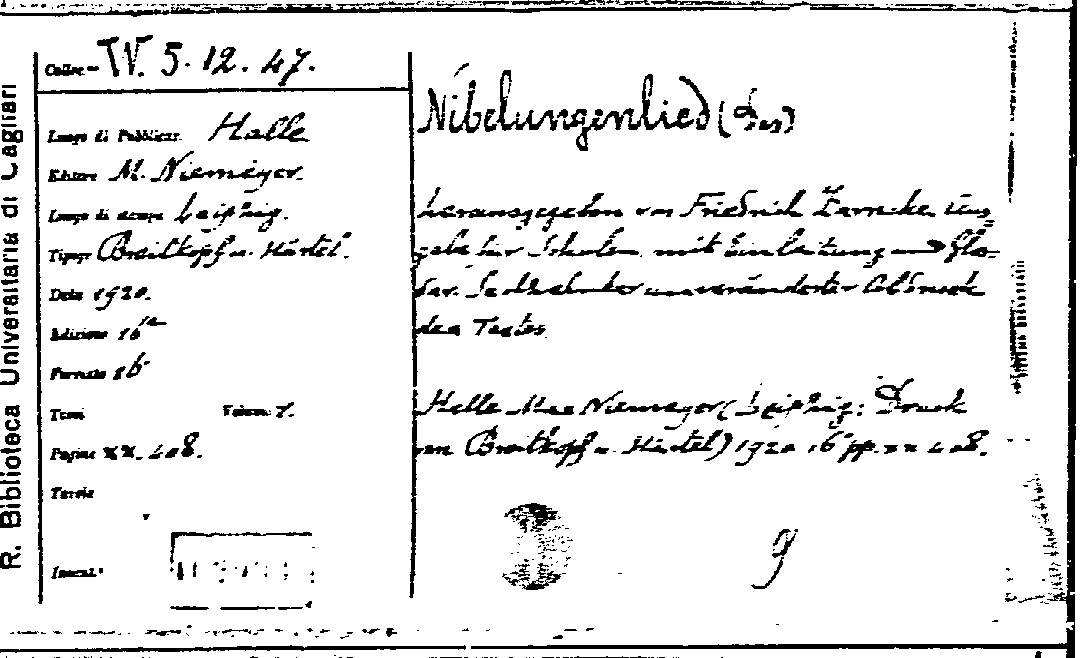 R. Biblioteca Universitaria di Cagliari
Colloc. W. 5. 12. 47.
Luogo di Pubblicaz. Halle
Editore M. Niemeyer.
Luogo di stampa Leipzig.
Tipogr. Breitkopf u. Härtel.
Data 1920.
Edizione 16a
Formato 16°
Tomi Volumi 1.
Pagine XX. 408.
Tavole
Inventar.°
Nibelungenlied (Das)
herausgegeben von Friedrich Zarncke. Aus=
gabe für Schulen mit Einleitung und Glos=
sar. Sechzehnter unveränderter Abdruck
des Textes.
Halle Max Niemeyer (Leipzig: Druck
von Breitkopf u. Härtel) 1920 16° pp. XX 408.
9